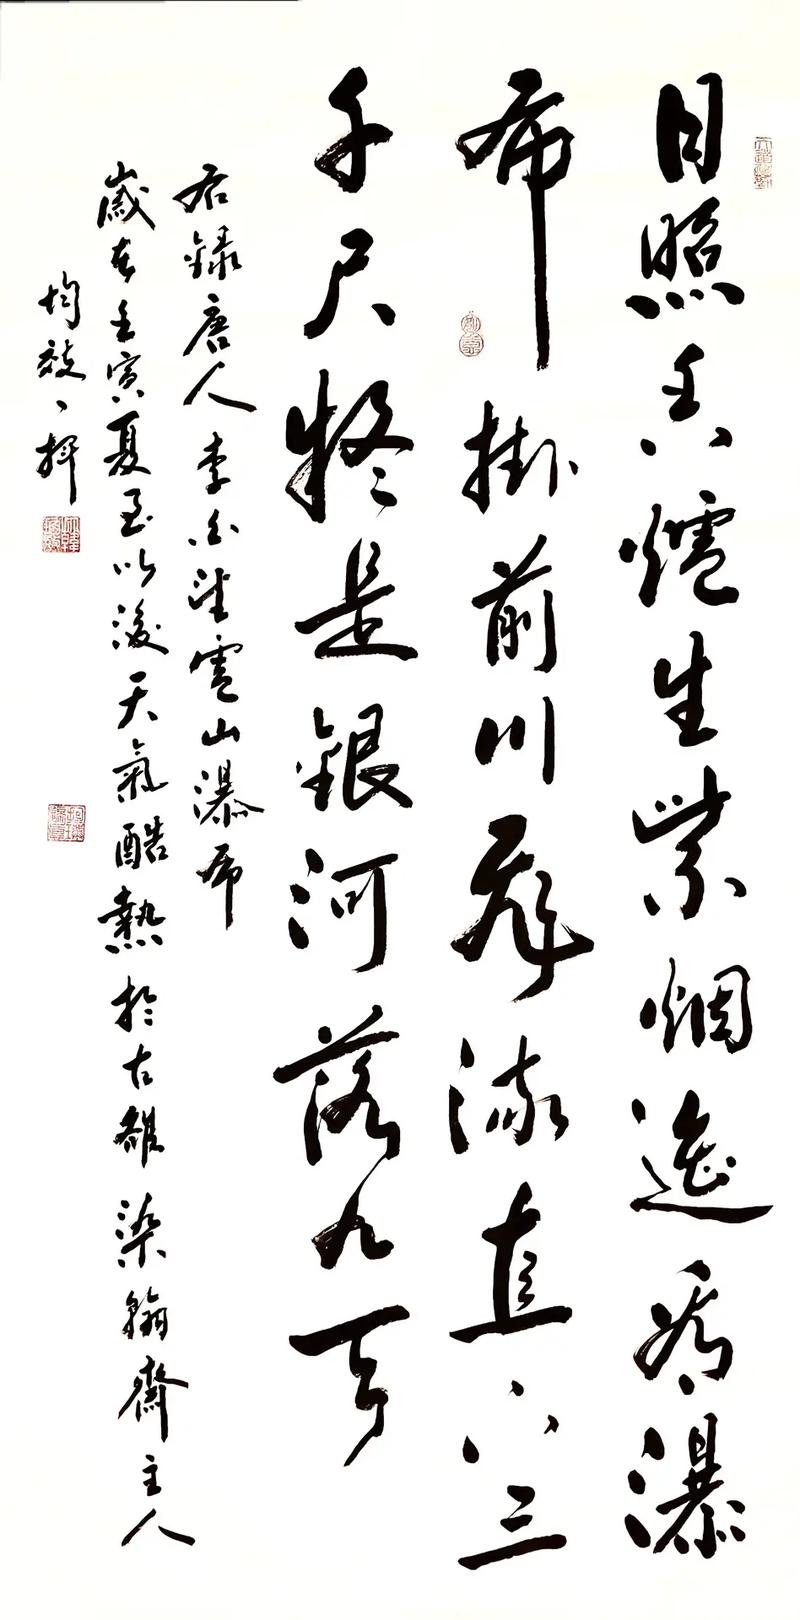 日照香爐生紫烟遙看瀑
布掛前川飛流直下三
千尺疑是銀河落九天
右録唐人李白望廬山瀑布
歲在壬寅夏至以後天氣酷熱於古雒染翰齋主人
均揮